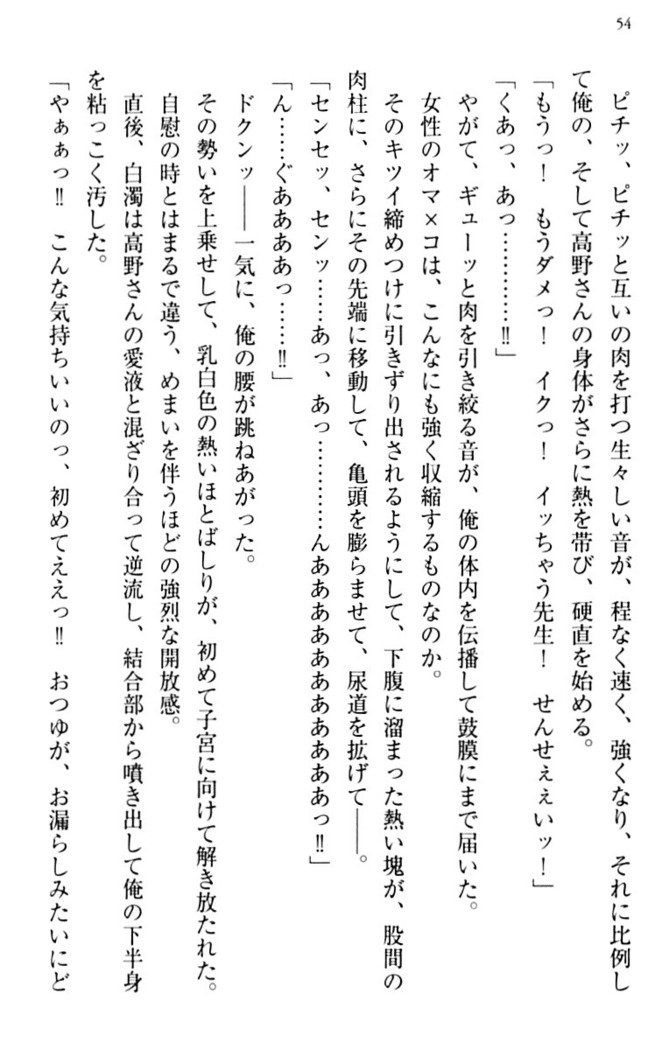 54
ピチッ、ピチッと互いの肉を打つ生々しい音が、程なく速く、強くなり、それに比例し
て俺の、そして高野さんの身体がさらに熱を帯び、硬直を始める。
「もうっ！　もうダメっ！　イクっ！　イッちゃう先生！　せんせぇぇいッ！」
「くあっ、あっ…………‼」
やがて、ギューッと肉を引き絞る音が、俺の体内を伝播して鼓膜にまで届いた。
女性のオマ×コは、こんなにも強く収縮するものなのか。
そのキツイ締めつけに引きずり出されるようにして、下腹に溜まった熱い塊が、股間の
肉柱に、さらにその先端に移動して、亀頭を膨らませて、尿道を拡げて――。
「センセッ、センッ……あっ、あっ…………んああああああああああああっ‼」
「ん……ぐああああっ……‼」
ドクンッ――一気に、俺の腰が跳ねあがった。
その勢いを上乗せして、乳白色の熱いほとばしりが、初めて子宮に向けて解き放たれた。
自慰の時とはまるで違う、めまいを伴うほどの強烈な開放感。
直後、白濁は高野さんの愛液と混ざり合って逆流し、結合部から噴き出して俺の下半身
を粘っこく汚した。
「やぁぁっ‼　こんな気持ちいいのっ、初めてええっ‼　おつゆが、お漏らしみたいにど